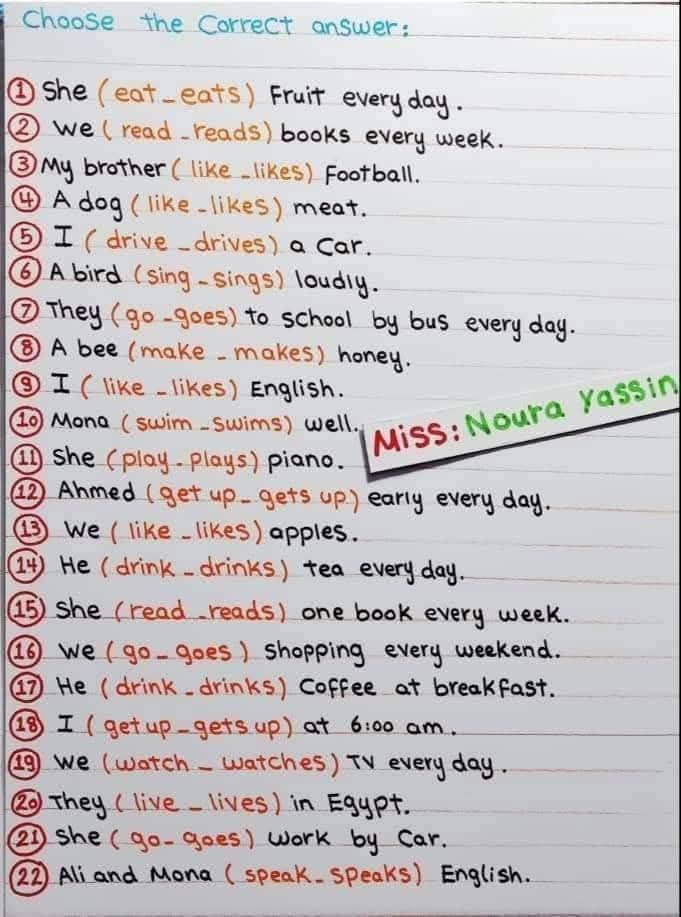 Choose the Correct answer:
① She (eat_eats) Fruit every day.
② We (read_reads) books every week.
③ My brother (like_likes) Football.
④ A dog (like_likes) meat.
⑤ I (drive_drives) a Car.
⑥ A bird (sing_sings) loudly.
⑦ They (go_goes) to school by bus every day.
⑧ A bee (make_makes) honey.
⑨ I (like_likes) English.
⑩ Mona (swim_swims) well.
Miss: Noura Yassin
⑪ She (play_plays) piano.
⑫ Ahmed (get up_gets up) early every day.
⑬ We (like_likes) apples.
⑭ He (drink_drinks) tea every day.
⑮ She (read_reads) one book every week.
⑯ We (go_goes) shopping every weekend.
⑰ He (drink_drinks) Coffee at breakfast.
⑱ I (get up_gets up) at 6:00 am.
⑲ We (watch_watches) TV every day.
⑳ They (live_lives) in Egypt.
㉑ She (go_goes) work by Car.
㉒ Ali and Mona (speak_speaks) English.